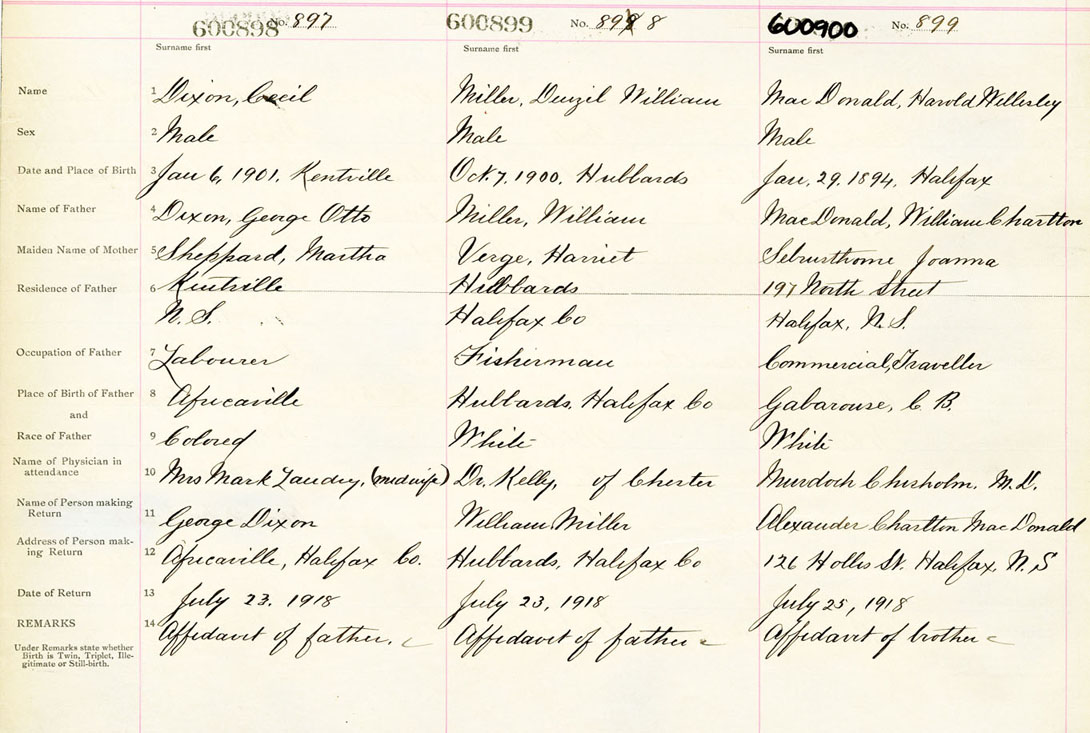 600898 No. 897 600899 No. 898 8 600900 No. 899
Surname first Surname first Surname first
Name 1 Dixon, Cecil Miller, Denzil William Mac Donald, Harold Wellesley
Sex 2 Male Male Male
Date and Place of Birth 3 Jan 6, 1901, Kentville Oct. 7, 1900, Hubbards Jan. 29. 1894, Halifax
Name of Father 4 Dixon, George Otto Miller, William MacDonald, William Charlton
Maiden Name of Mother 5 Sheppard, Martha Verge, Harriet Joanna
Residence of Father 6 Kentville Hubbards 197 North Street
N. S. Halifax Co Halifax, N. S.
Occupation of Father 7 Labourer Fisherman Commercial Traveller
Place of Birth of Father 8 Africaville Hubbards, Halifax Co Gabarouse, C. B.
and
Race of Father 9 Colored White White
Name of Physician in
attendance 10 Mrs Mark Landry, (midwife) Dr. Kelly, of Chester Murdoch Chisholm, M. D.
Name of Person making
Return 11 George Dixon William Miller Alexander Charlton Mac Donald
Address of Person mak-
ing Return 12 Africaville, Halifax Co. Hubbards, Halifax Co 126 Hollis St. Halifax, N. S
Date of Return 13 July 23, 1918 July 23, 1918 July 25, 1918
REMARKS 14 Affidavit of father. Affidavit of father Affidavit of brother
Under Remarks state whether
Birth is Twin, Triplet, Ille-
gitimate or Still-birth.